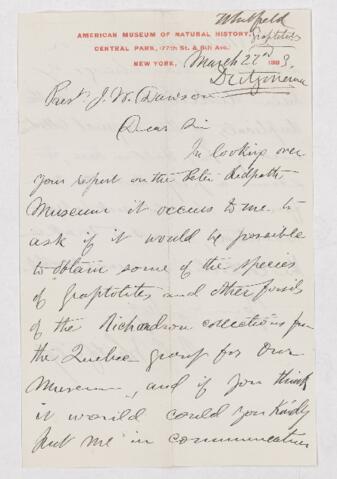 Whitfield
Graptolites
AMERICAN MUSEUM OF NATURAL HISTORY,
CENTRAL PARK, (77th St. & 8th Ave.)
NEW YORK, March 22nd 1883.
Dictyonema
Prest. J. W. Dawson
Dear Sir
In looking over
your report on the Peter Redpath
Museum it occurs to me to
ask if it would be possible
to obtain some of the species
of Graptolites and other fossils
of the Richardson collections from
the Quebec group for our
Museum, and if you think
it would could you Kindly
put me in communication